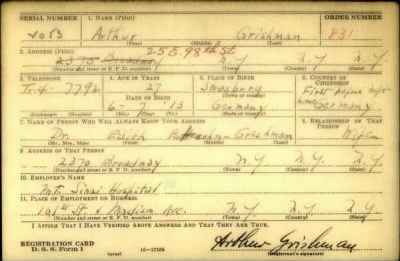 SERIAL NUMBER 1. NAME (Print) ORDER NUMBER
2083 Arthur Grishman 831
(First) (Middle) (Last)
2. ADDRESS (Print) 25 E. 98th St
2370 Broadway N.Y. N.Y. N.Y.
(Number and street or R. F. D. number) (Town) (County) (State)
3. TELEPHONE 4. AGE IN YEARS 5. PLACE OF BIRTH 6. COUNTRY OF CITIZENSHIP
7792 27 First papers
DATE OF BIRTH
6-7-13 Germany Germany
(Exchange) (Number) (Mo.) (Day) (Yr.) (Town) (State or country)
7. NAME OF PERSON WHO WILL ALWAYS KNOW YOUR ADDRESS 8. RELATIONSHIP OF THAT PERSON
Dr. Edith Grishman Wife
(Mr., Mrs., Miss) (First) (Middle) (Last)
9. ADDRESS OF THAT PERSON
2370 Broadway N.Y. N.Y. N.Y.
(Number and street or R. F. D. number) (Town) (County) (State)
10. EMPLOYER'S NAME
Mt. Sinai Hospital
11. PLACE OF EMPLOYMENT OR BUSINESS
101st St. & Madison Ave. N.Y. N.Y. N.Y.
(Number and street or R. F. D. number) (Town) (County) (State)
I AFFIRM THAT I HAVE VERIFIED ABOVE ANSWERS AND THAT THEY ARE TRUE.
REGISTRATION CARD
D. S. S. Form 1 (over) 16-17105 Arthur Grishman
(Registrant's signature)